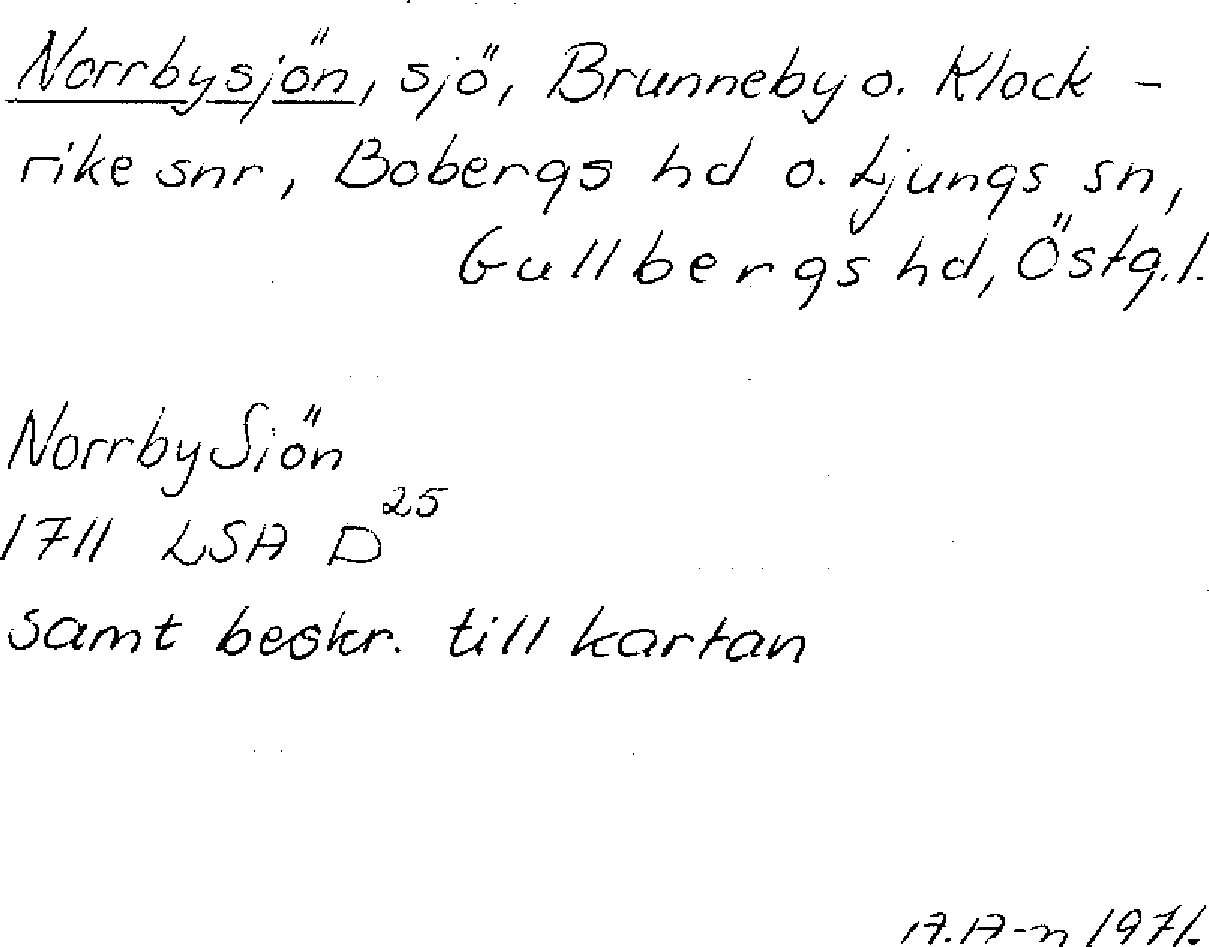 Norrbysjön, sjö, Brunneby o. Klock-
rike snr, Bobergs hd o. Ljungs sn,
Gullbergs hd, Östg.l.
NorrbySiön
1711 LSA D25
samt beskr. till kartan
A.A-n 1971.